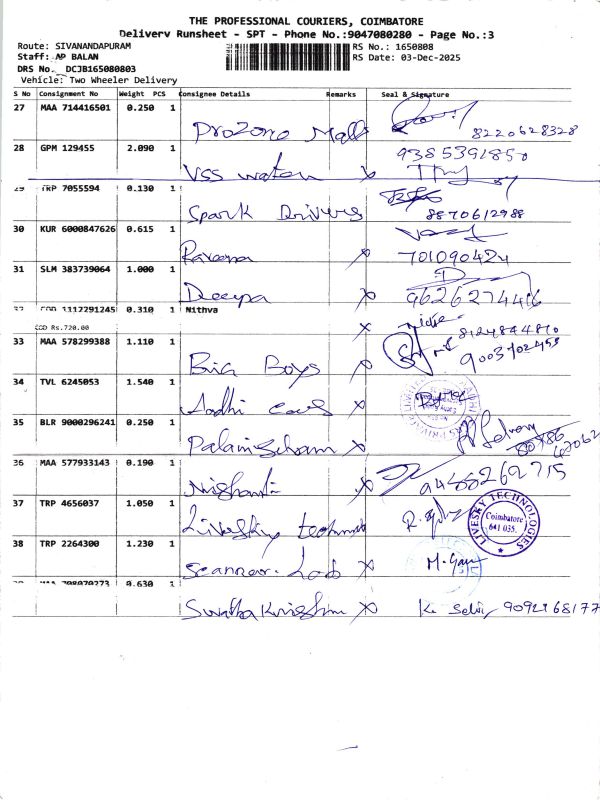 THE PROFESSIONAL COURIERS, COIMBATORE
Delivery Runsheet - SPT - Phone No.:9047080280 - Page No.:3
Route: SIVANANDAPURAM
RS No.: 1650808
Staff: AP BALAN
RS Date: 03-Dec-2025
DRS No. DCJB165080803
Vehicle: Two Wheeler Delivery
S No Consignment No Weight PCS Consignee Details Remarks Seal & Signature
27 MAA 714416501 0.250 1
Prozone Mall 8220628328
28 GPM 129455 2.090 1 9385391850
VSS water x
29 TRP 7055594 0.130 1
Spark Drivers 8870612988
30 KUR 6000847626 0.615 1
Raveena x 701090424
31 SLM 383739064 1.000 1
Deepa x 9626274416
32 COD 1112291245 0.310 1 Nithva
COD Rs.720.00 x 8124844810
33 MAA 578299388 1.110 1 9003702458
Big Boys x
34 TVL 6245053 1.540 1
Aadhi cars x
35 BLR 9000296241 0.250 1
Palanisamy x
36 MAA 577933143 0.190 1
Nishanti x 9488262715
37 TRP 4656037 1.050 1
LIVESKY TECHNOLOGIES
Coimbatore
641 035.
38 TRP 2264300 1.230 1
Scanner Lab x M.Gan
39 MAA 798070273 0.630 1
Swatha Krishna x K. Selvi 9092168177